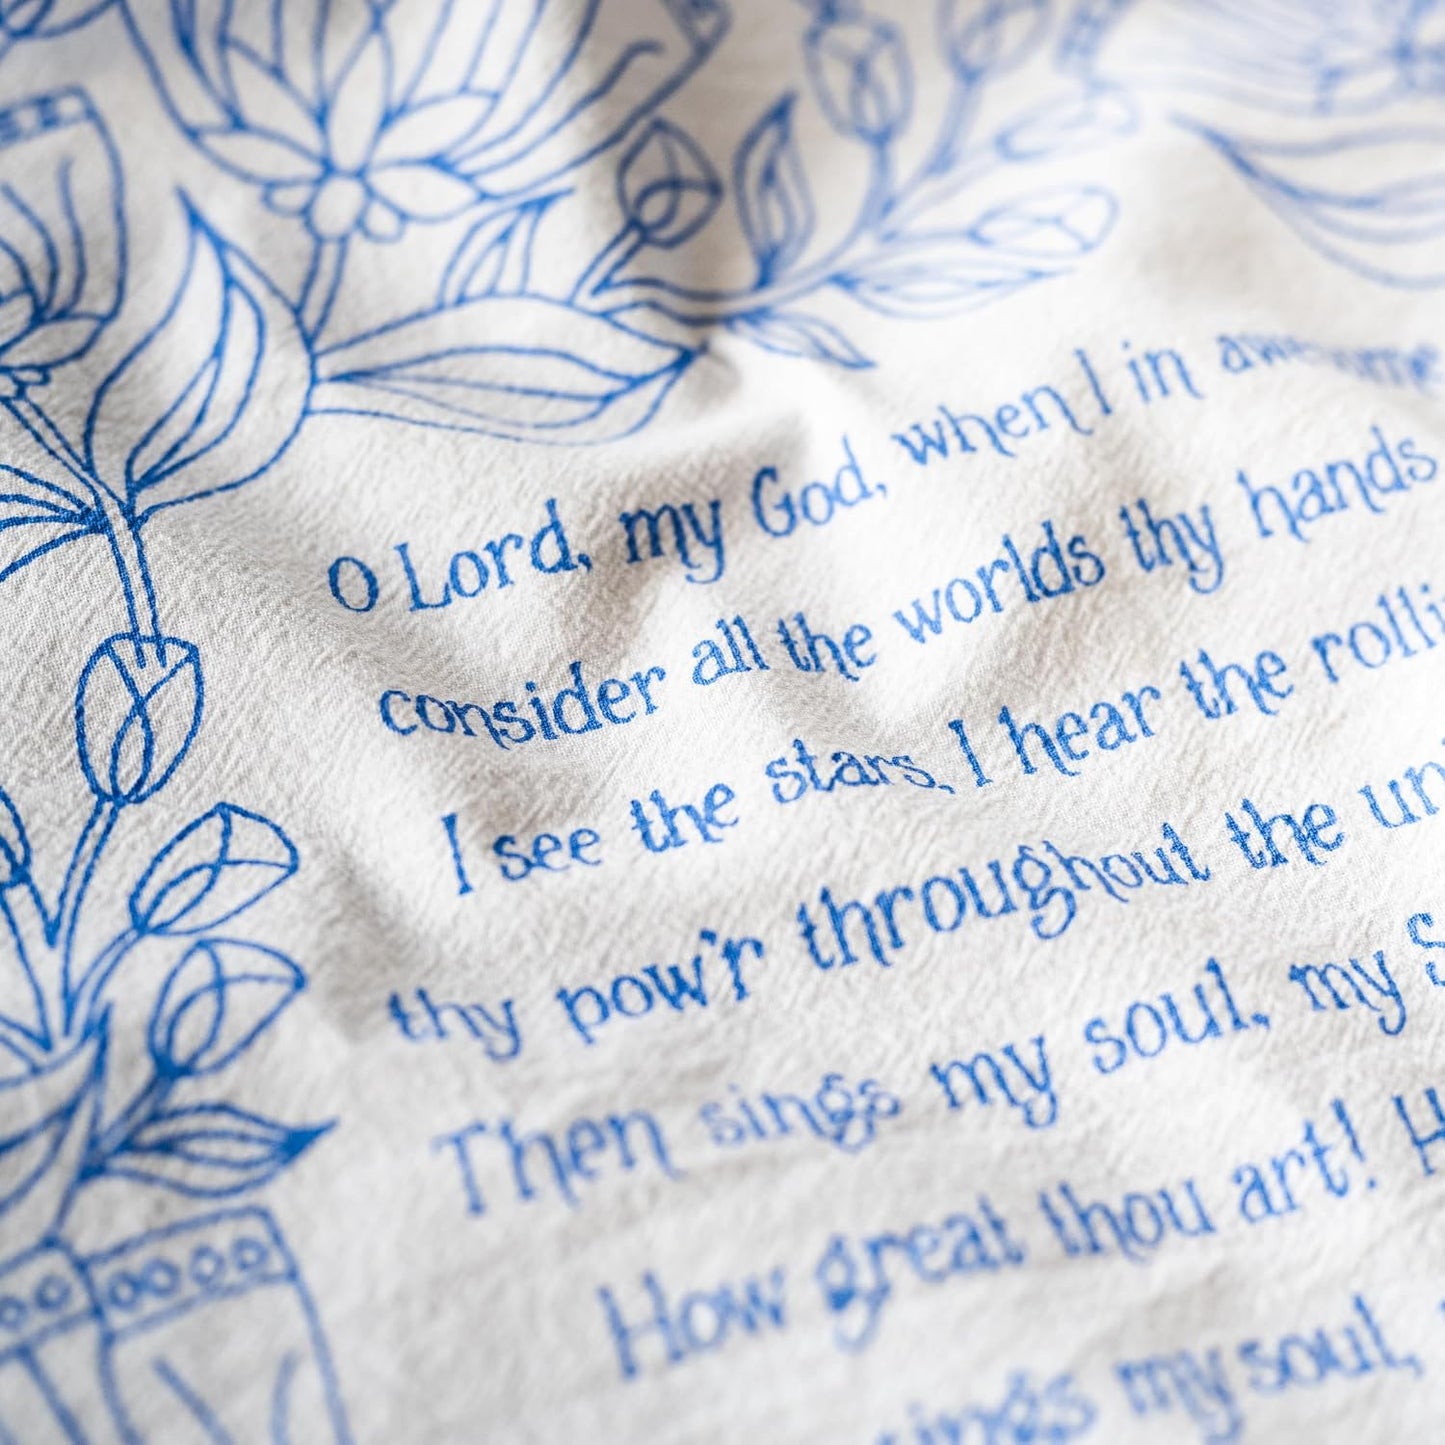 O Lord, my God, when I in awesome
consider all the worlds thy hands
I see the stars, I hear the rolli
thy pow'r throughout the uni
Then sings my soul, my S
How great thou art! H
sings my soul,